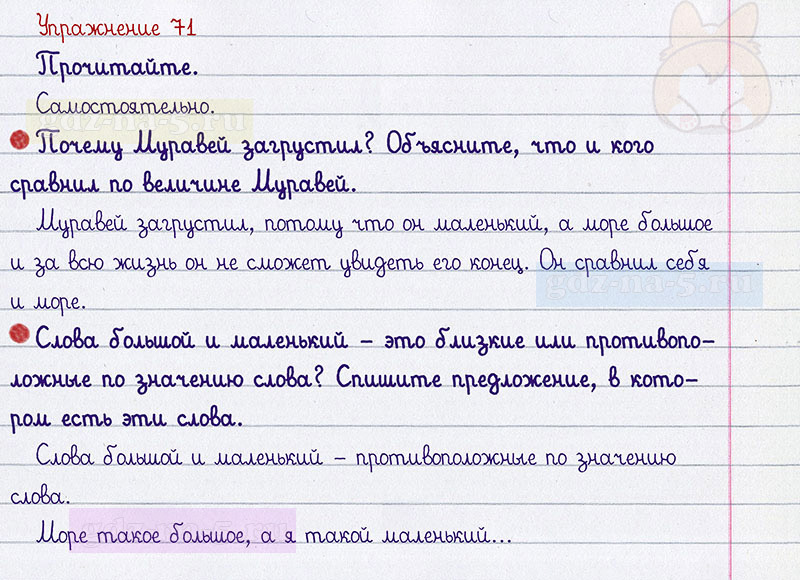 Упражнение 71
Прочитайте.
Самостоятельно.
Почему Муравей загрустил? Объясните, что и кого
сравнил по величине Муравей.
Муравей загрустил, потому что он маленький, а море большое
и за всю жизнь он не сможет увидеть его конец. Он сравнил себя
и море.
Слова большой и маленький – это близкие или противопо–
ложные по значению слова? Спишите предложение, в кото–
ром есть эти слова.
Слова большой и маленький – противоположные по значению
слова.
Море такое большое, а я такой маленький...
gdz-na-5.ru
gdz-na-5.ru
gdz-na-5.ru